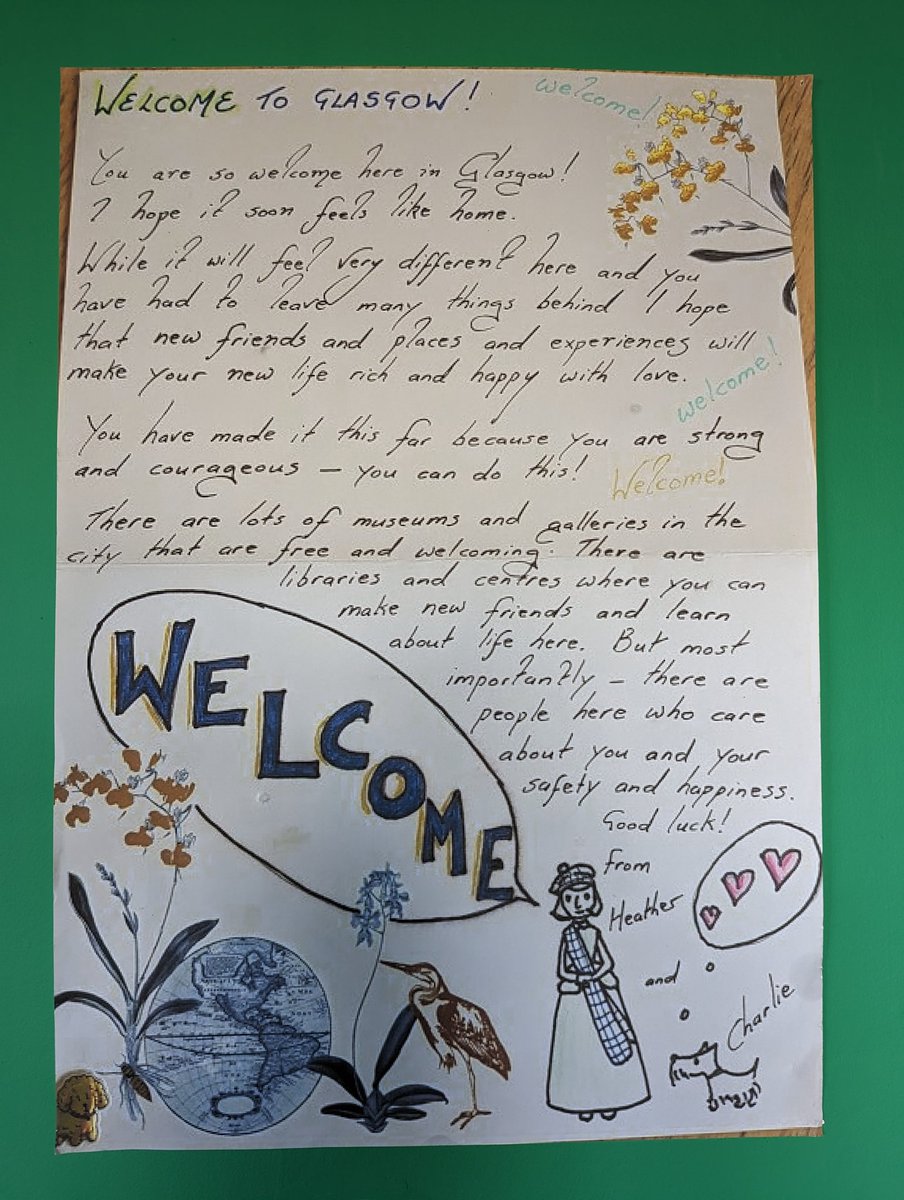 WELCOME TO GLASGOW!
welcome!
You are so welcome here in Glasgow!
I hope it soon feels like home.
While it will feel very different here and you
have had to leave many things behind I hope
that new friends and places and experiences will
make your new life rich and happy with love.
welcome!
You have made it this far because you are strong
and courageous – you can do this!
Welcome!
There are lots of museums and galleries in the
city that are free and welcoming. There are
libraries and centres where you can
make new friends and learn
about life here. But most
importantly – there are
people here who care
about you and your
safety and happiness.
Good luck!
WELCOME
from
Heather
and
Charlie